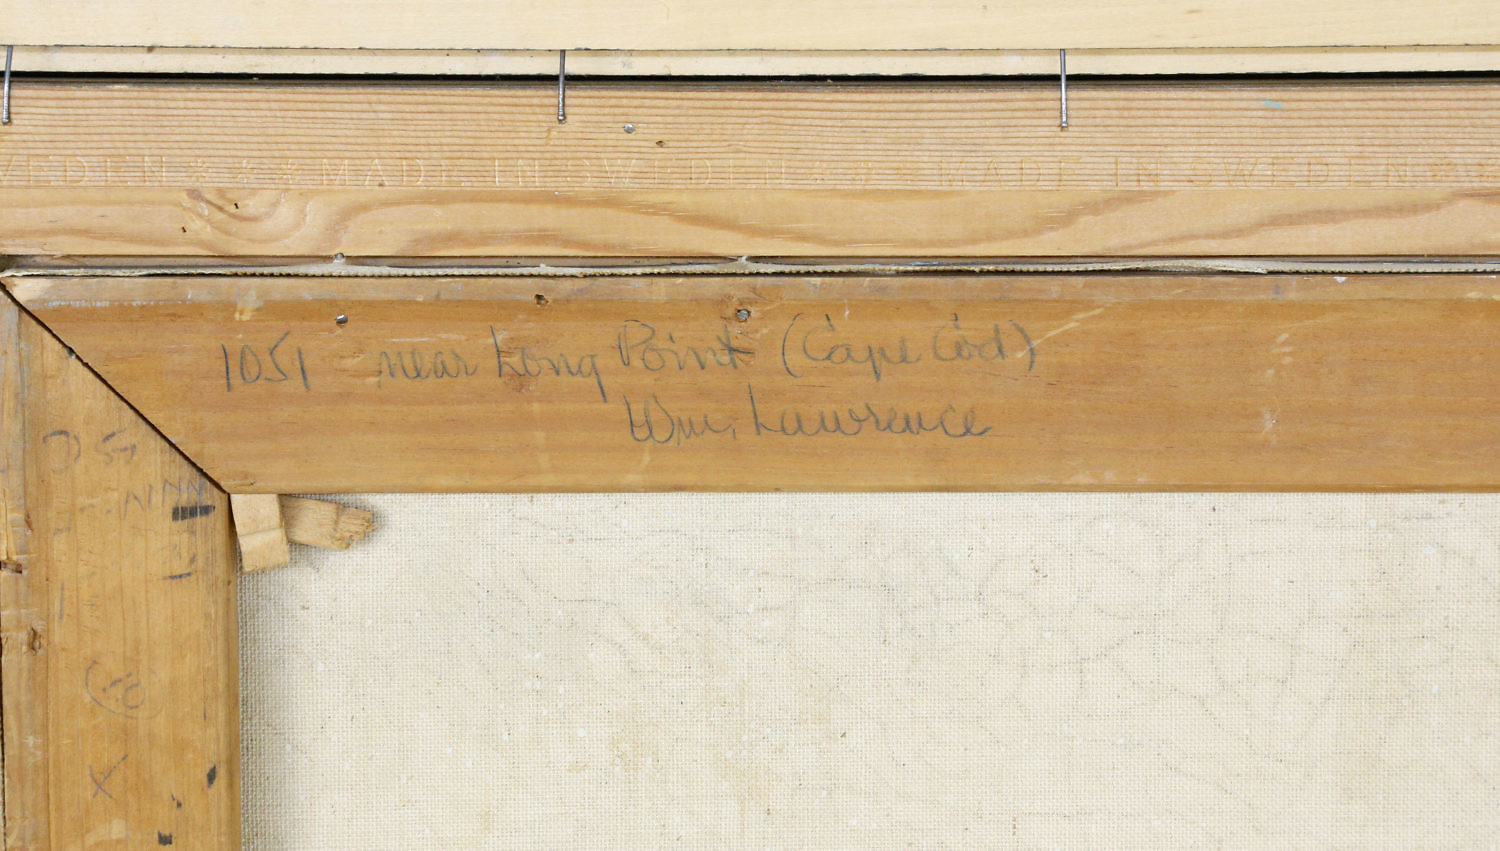 WEDEN * * * MADE IN SWEDEN * * * MADE IN SWEDEN * *
1051 near Long Point (Cape Cod)
Wm. Lawrence
10
X